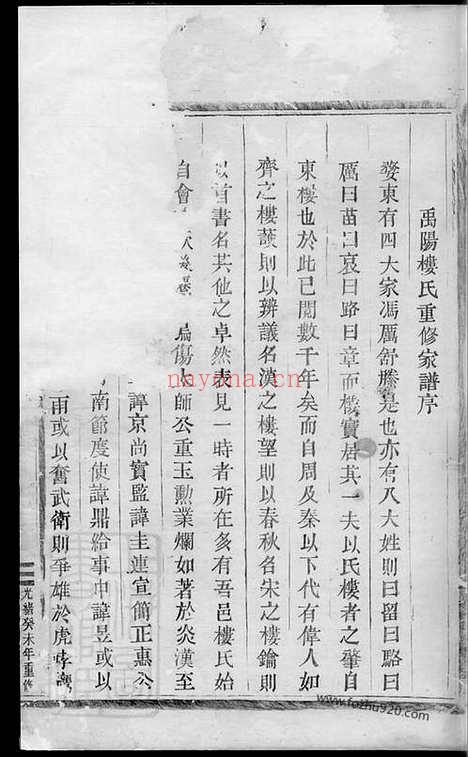 禹陽樓氏重修家譜序
婺東有四大家馮厲舒滕是也亦有八大姓則曰留曰駱曰
厲曰苗曰哀曰路曰章而樓實居其一夫以氏樓者之肇自
東樓也於此已閱數千年矣而自周及秦以下代有偉人如
齊之樓護則以辨議名漢之樓望則以春秋名宋之樓鑰則
以首書名其他之卓然表見一時者所在多有吾邑樓氏始
自會 傷大師公重玉勲業爛如著於炎漢至
諱京尚實監諱圭連宣簡正惠公
南節度使諱鼎給事中諱昱或以
雨或以奮武衛則爭雄於虎
光緒癸未年重修
nayona.cn
www.fozhu920.com